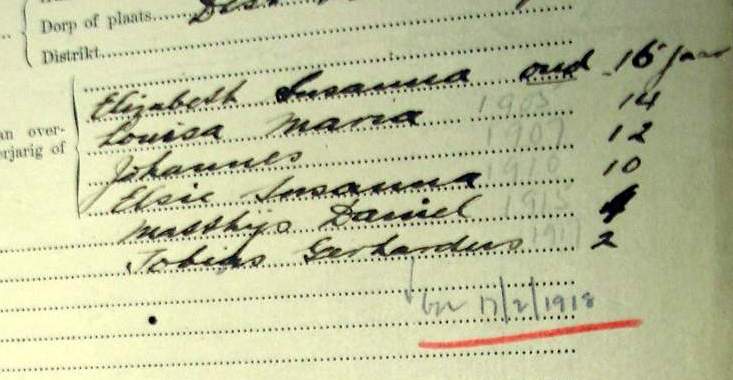 Dorp of plaats
Distrikt
Elizabeth Susanna oud 16 jaar
an over- Louisa Maria 1903 14
erjarig of Johannes 1907 12
Elsie Susanna 1910 10
Matthijs Daniel 1915 4
Tobias Gerhardus 1917 2
17/2/1918